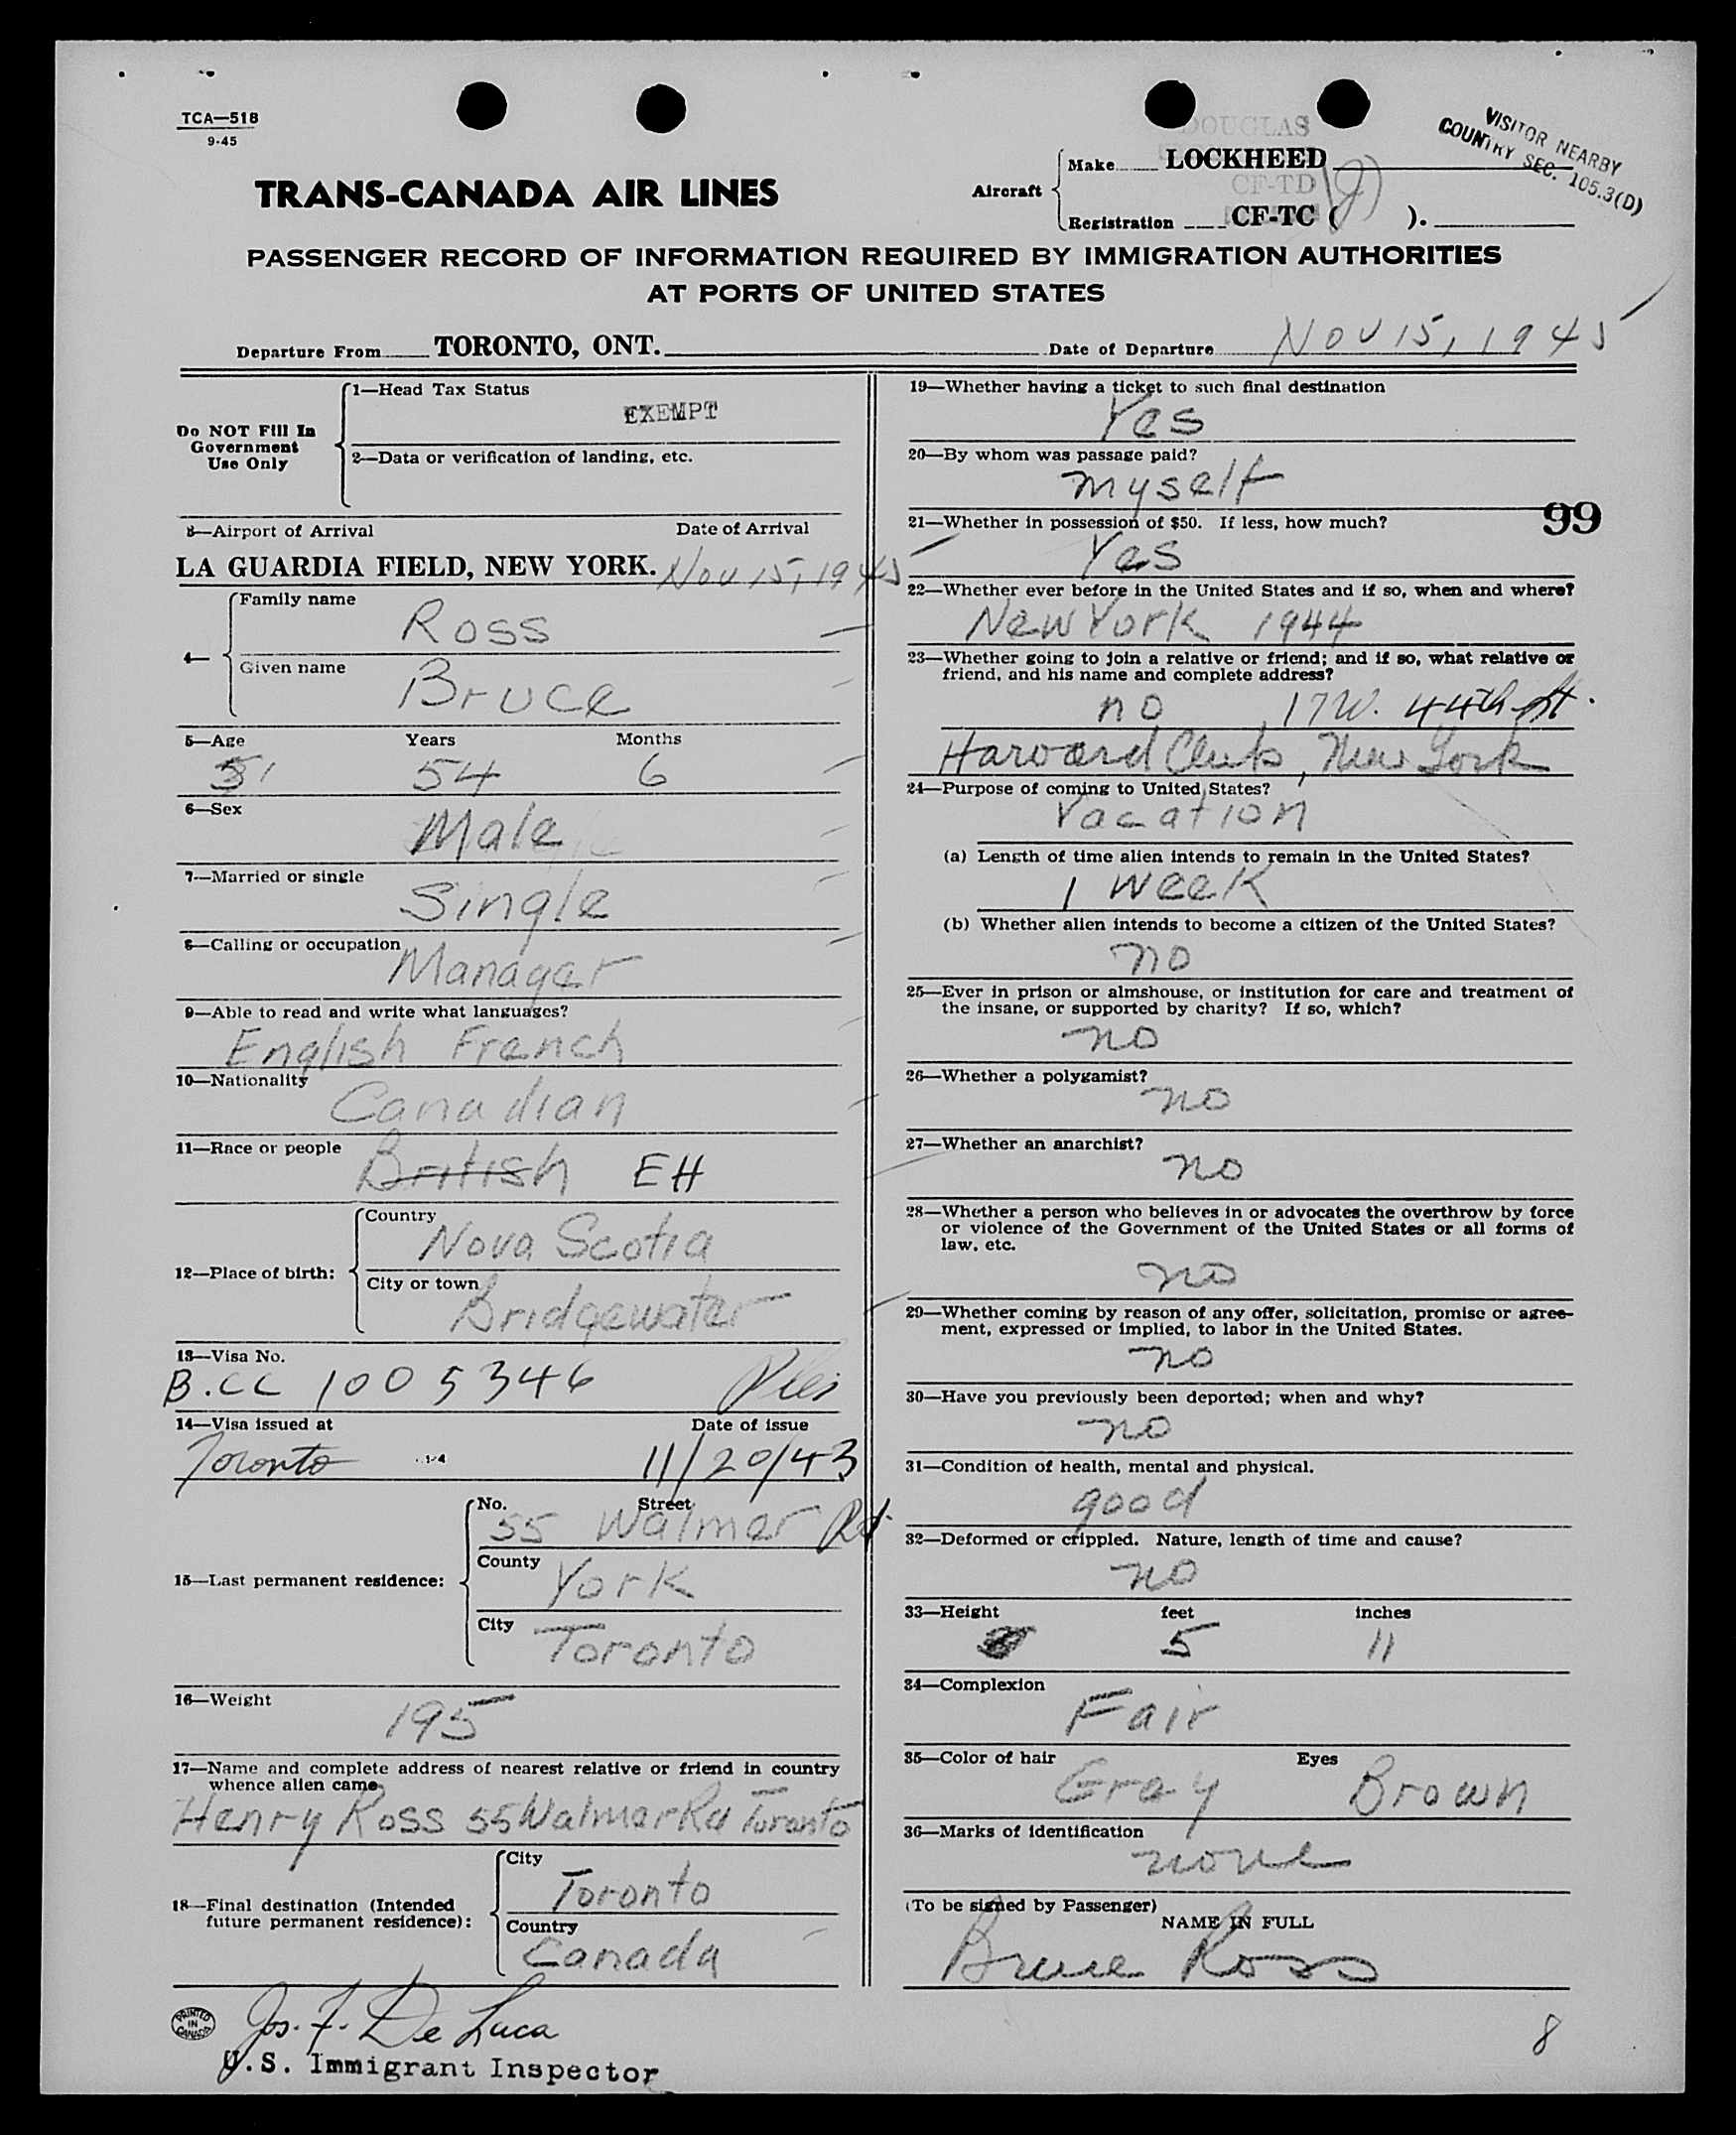 TCA—518
9-45
TRANS-CANADA AIR LINES
DOUGLAS
Aircraft
Make LOCKHEED
CF-TD
Registration CF-TC ( ).
VISITOR NEARBY
COUNTRY SEC. 105.3(D)
PASSENGER RECORD OF INFORMATION REQUIRED BY IMMIGRATION AUTHORITIES
AT PORTS OF UNITED STATES
Departure From TORONTO, ONT. Date of Departure Nov 15, 1945
Do NOT Fill In
Government
Use Only
1—Head Tax Status
EXEMPT
2—Data or verification of landing, etc.
3—Airport of Arrival Date of Arrival
LA GUARDIA FIELD, NEW YORK. Nov 15, 1945
4—
Family name
Ross
Given name
Bruce
5—Age Years Months
54 6
6—Sex
Male
7—Married or single
Single
8—Calling or occupation
Manager
9—Able to read and write what languages?
English French
10—Nationality
Canadian
11—Race or people
British EH
12—Place of birth:
Country
Nova Scotia
City or town
Bridgewater
13—Visa No.
B.CC 1005346
14—Visa issued at Date of issue
Toronto 11/20/43
15—Last permanent residence:
No. Street
55 Walmer Rd.
County
York
City
Toronto
16—Weight
195
17—Name and complete address of nearest relative or friend in country
whence alien came
Henry Ross 55 Walmer Rd Toronto
18—Final destination (Intended
future permanent residence):
City
Toronto
Country
Canada
Jos. F. De Luca
U.S. Immigrant Inspector
PRINTED
IN
CANADA
19—Whether having a ticket to such final destination
Yes
20—By whom was passage paid?
myself
99
21—Whether in possession of $50. If less, how much?
Yes
22—Whether ever before in the United States and if so, when and where?
New York 1944
23—Whether going to join a relative or friend; and if so, what relative or
friend, and his name and complete address?
no 17 W. 44th St.
Harvard Club, New York
24—Purpose of coming to United States?
Vacation
(a) Length of time alien intends to remain in the United States?
1 week
(b) Whether alien intends to become a citizen of the United States?
no
25—Ever in prison or almshouse, or institution for care and treatment of
the insane, or supported by charity? If so, which?
no
26—Whether a polygamist?
no
27—Whether an anarchist?
no
28—Whether a person who believes in or advocates the overthrow by force
or violence of the Government of the United States or all forms of
law, etc.
no
29—Whether coming by reason of any offer, solicitation, promise or agree-
ment, expressed or implied, to labor in the United States.
no
30—Have you previously been deported; when and why?
no
31—Condition of health, mental and physical.
good
32—Deformed or crippled. Nature, length of time and cause?
no
33—Height feet inches
5 11
34—Complexion
Fair
35—Color of hair Eyes
Gray Brown
36—Marks of identification
none
(To be signed by Passenger)
NAME IN FULL
Bruce Ross
8